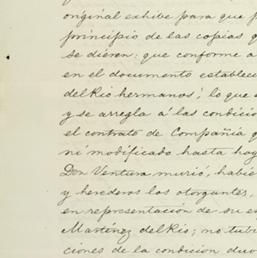 original exhibe para que p
principio de las copias q
se dieren: que conforme a
en el documento establec
del Rio hermanos; lo que e
y se arregla á las condicio
el contrato de Compañia q
ni modificado hasta hoy
Don Ventura murió, habie
y herederos los otorgantes,
en representación de su es
Martínez del Rio; no tubi
ciones de la condición duo